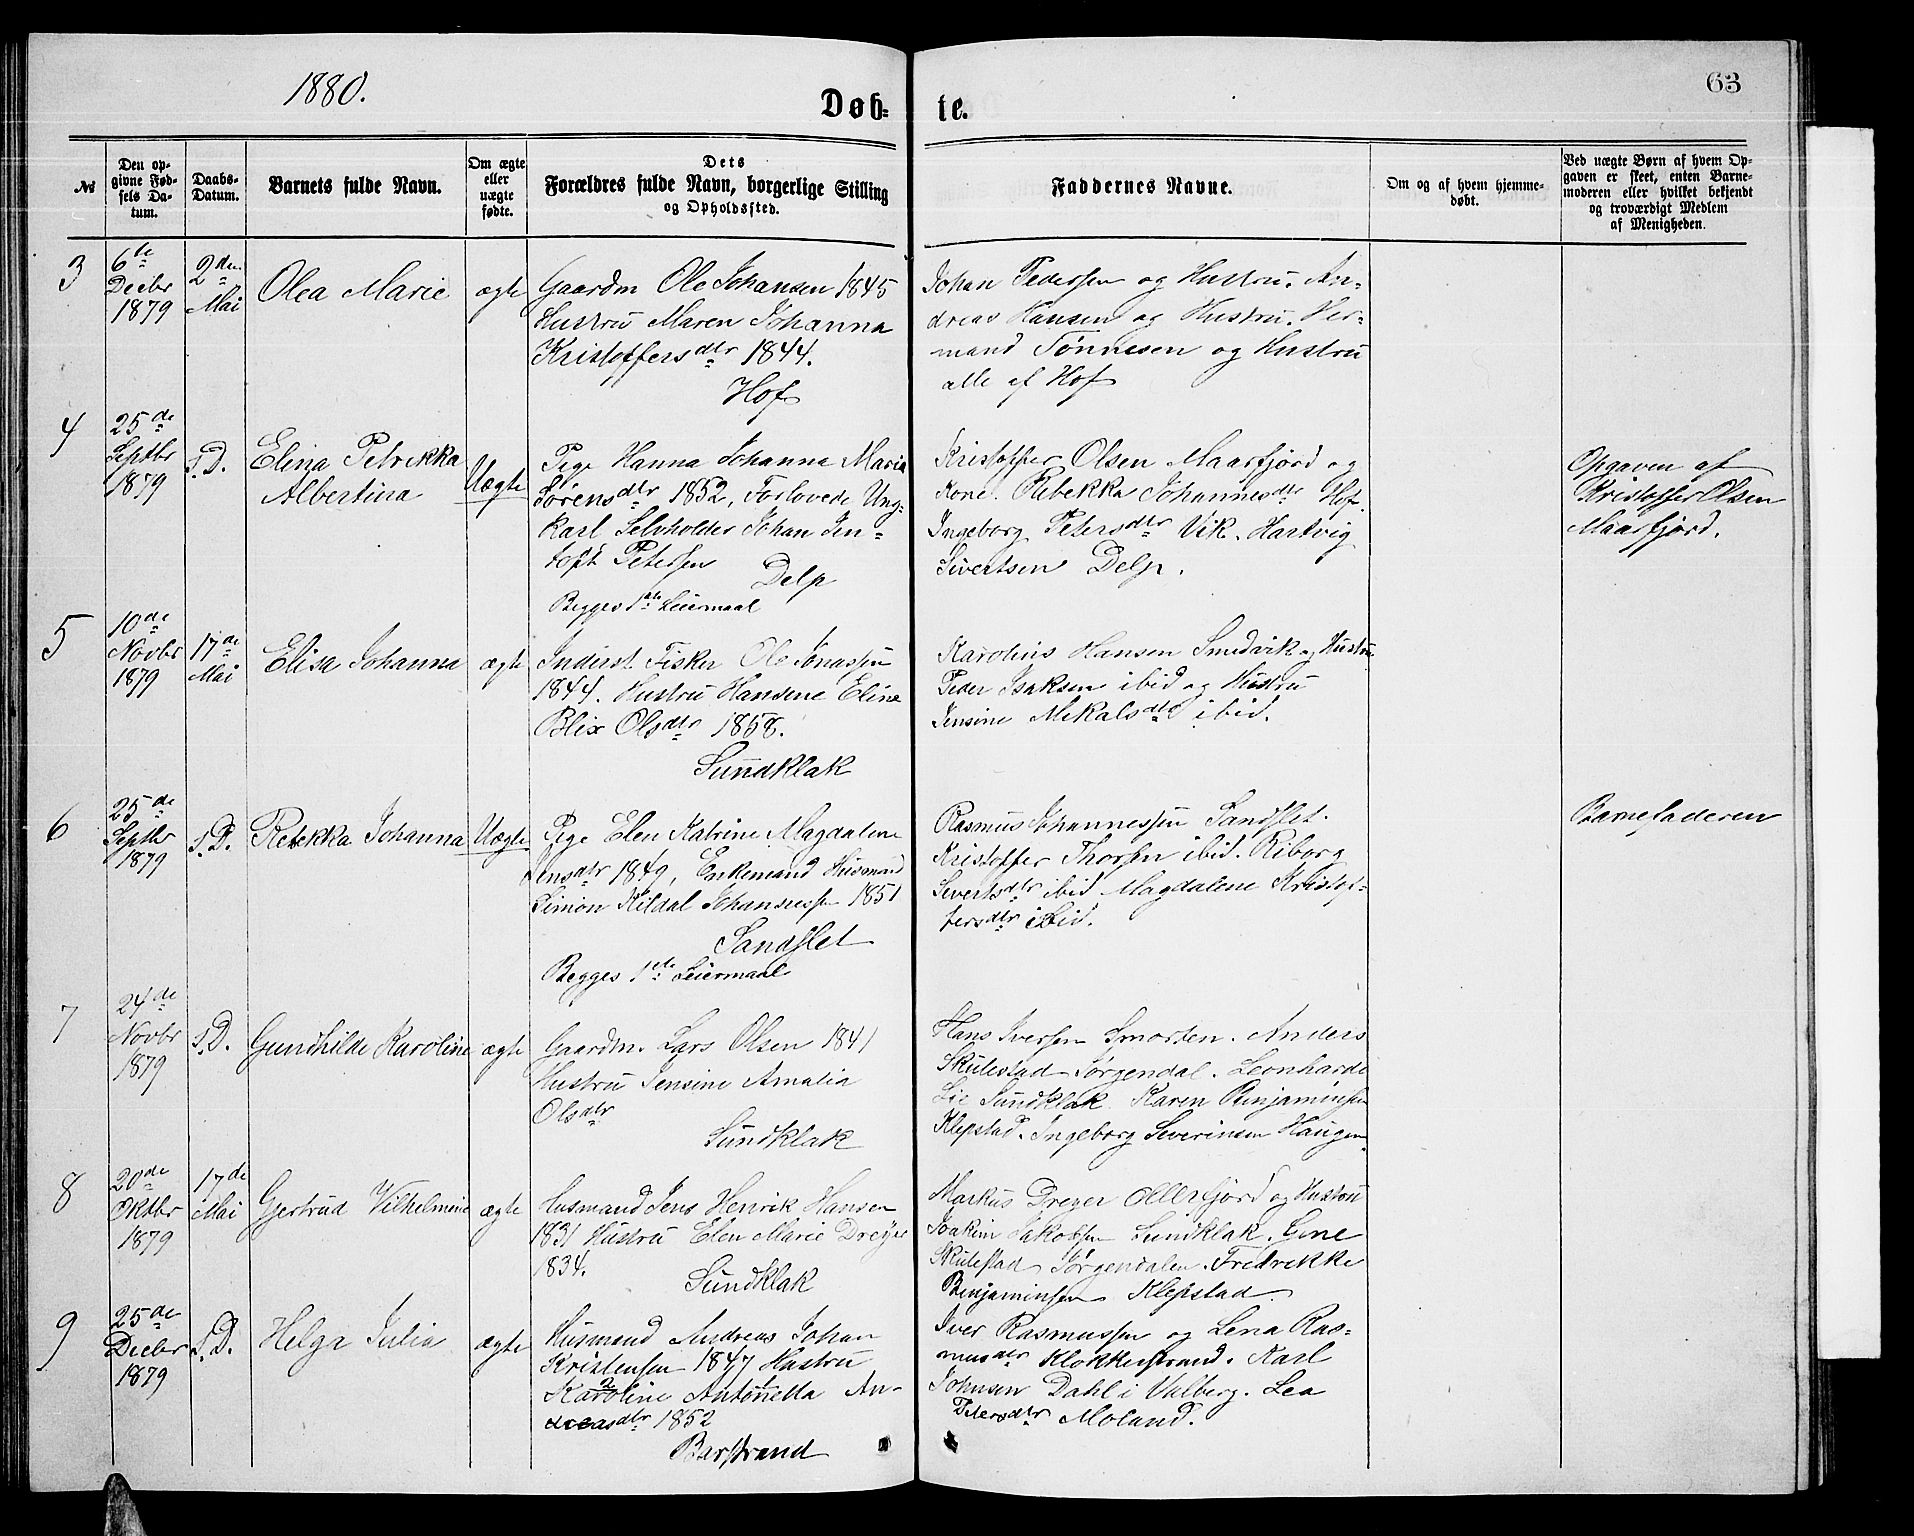 1880.
63
Døb-
te.
№
Den op-
givne Fød-
sels Da-
tum.
Daabs-
Datum.
Barnets fulde Navn.
Om ægte
eller
uægte
fødte.
Dets
Forældres fulde Navn, borgerlige Stilling
og Opholdssted.
Faddernes Navne.
Om og af hvem hjemme-
døbt.
Ved uægte Børn af hvem Op-
gaven er skeet, enten Barne-
moderen eller hvilket bekjendt
og troværdigt Medlem
af Menigheden.
3
6te
Decbr
1879
2den
Mai
Olea Marie
ægte
Gaardm Ole Johansen 1845
Hustru Maren Johanna
Kristoffersdtr 1844.
Hof
Johan Pedersen og Hustru. An-
dreas Hansen og Hustru. Her-
mand Tønnesen og Hustru
alle af Hof
4
25de
Septbr
1879
s.D.
Elina Petrikka
Albertina
Uægte
Pige Hanna Johanna Maria
Sørensdtr 1852, Forlovede Ung-
karl Selvholder Johan Jen-
toft Petersen
Delp
Begges 1ste Leiermaal
Kristoffer Olsen Maarfjord og
Kone. Rebekka Johannesdtr Hof.
Ingeborg Petersdtr Vik. Hartvig
Sivertsen Delp.
Opgaven af
Kristoffer Olsen
Maarfjord.
5
10de
Novbr
1879
17de
Mai
Elisa Johanna
ægte
Inderst Fisker Ole Jonassen
1844. Hustru Hansene Elina
Blix Olsdtr 1858.
Sundklak
Karolius Hansen Smedvik og Hustru
Peder Isaksen ibid og Hustru
Jensine Mekalsdtr ibid.
6
25de
Septbr
1879
s.D.
Rebekka Johanna
Uægte
Pige Elen Katrine Magdalene
Jensdtr 1849, Enkemand Husmand
Simon Kildal Johannessen 1851
Sandslet
Begges 1ste Leiermaal
Rasmus Johannessen Sandslet.
Kristoffer Thorsen ibid. Riborg
Sivertsdtr ibid Magdalene Kristof-
fersdtr ibid.
Barnefaderen
7
24de
Novbr
1879
s.D.
Gundhilde Karoline
ægte
Gaardm. Lars Olsen 1841
Hustru Jensine Amalia
Olsdtr
Sundklak
Hans Iversen Smorten. Anders
Skulestad Jørgendal. Leonharde
Lie Sundklak. Karen Benjaminsen
Klepstad. Ingeborg Severinsen Haugen
8
20de
Oktbr
1879
17de
Mai
Gjertrud Vilhelmine
ægte
Husmand Jens Henrik Hansen
1831 Hustru Elen Marie Dreyer
1834.
Sundklak
Markus Dreyer Ollerfjord og Hustru
Joakim Jakobsen Sundklak. Gine
Skulestad Jørgendalen. Fredrikke
Benjaminsen Klepstad.
9
25de
Decbr
1879
s.D.
Helga Julia
ægte
Husmand Andreas Johan
Kristensen 1847 Hustru
Karoline Antonetta An-
dreasdtr 1852
Barstrand
Iver Rasmussen og Lena Ras-
musdtr Klokkerstrand. Karl
Johnsen Dahl i Valberg. Lea
Petersdtr Moland.